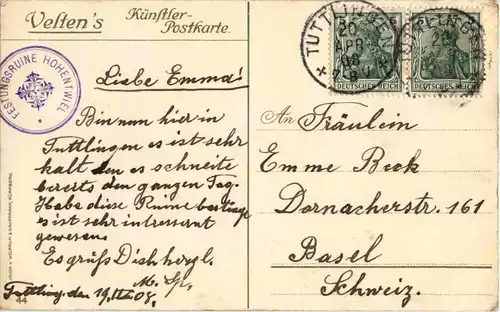 Velten's Künstler-
Postkarte.
FESTUNGSRUINE HOHENTWIEL
TUTTLINGEN
20
APR
08
7-8
DEUTSCHES REICH
DEUTSCHES REICH
Liebe Emma!
Bin nun hier in
Tuttlingen es ist sehr
kalt den es schneite
bereits den ganzen Tag.
Habe diese Ruine
es ist sehr interessant
gewesen.
Es grüßt Dich herzl.
Tuttling. den 19. 08.
An Fräulein
Emme Beck
Dornacherstr. 161
Basel
Schweiz.
44